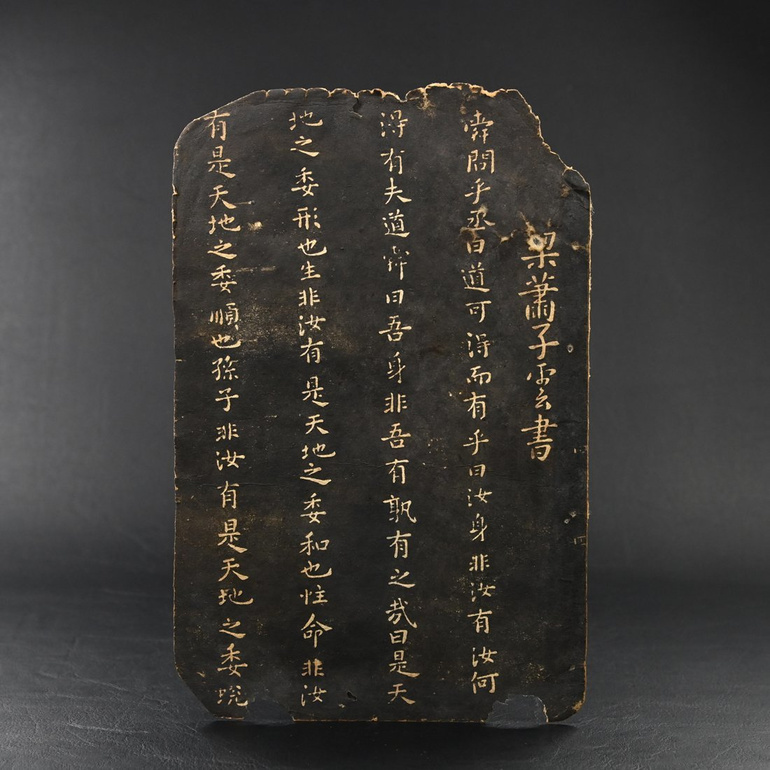 梁蕭子雲書
舜問乎丞曰道可得而有乎曰汝身非汝有汝何
得有夫道舜曰吾身非吾有孰有之哉曰是天
地之委形也生非汝有是天地之委和也性命非汝
有是天地之委順也孫子非汝有是天地之委蛻